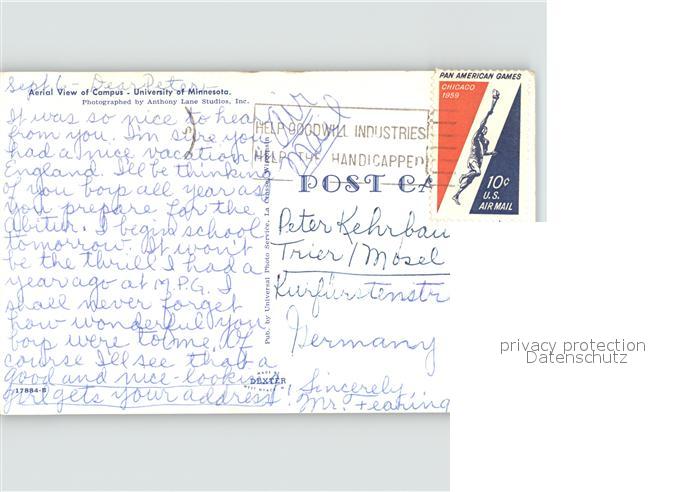 Sept 6 - Dear Peter,
Aerial View of Campus - University of Minnesota.
Photographed by Anthony Lane Studios, Inc.
It was so nice to hear
from you. I'm sure you
had a nice vacation in
England. I'll be thinking
of you boys all year as
you prepare for the
Abitur. I begin school
tomorrow. It won't
be the thrill I had a
year ago at M.P.G. I
shall never forget
how wonderful you
boys were to me. Of
course I'll see that a
good and nice-looking
girl gets your address!
Sincerely,
Mr. Fearing
17884-B
Pub. by Universal Photo Service, La Crosse, Wisconsin
MADE BY
DEXTER
WEST NYACK
air
mail
HELP GOODWILL INDUSTRIES
HELP THE HANDICAPPED
POST CA
PAN AMERICAN GAMES
CHICAGO
1959
10¢
U.S.
AIR MAIL
Peter Kehrbau
Trier / Mosel
Kurfürstenstr
Germany
privacy protection
Datenschutz